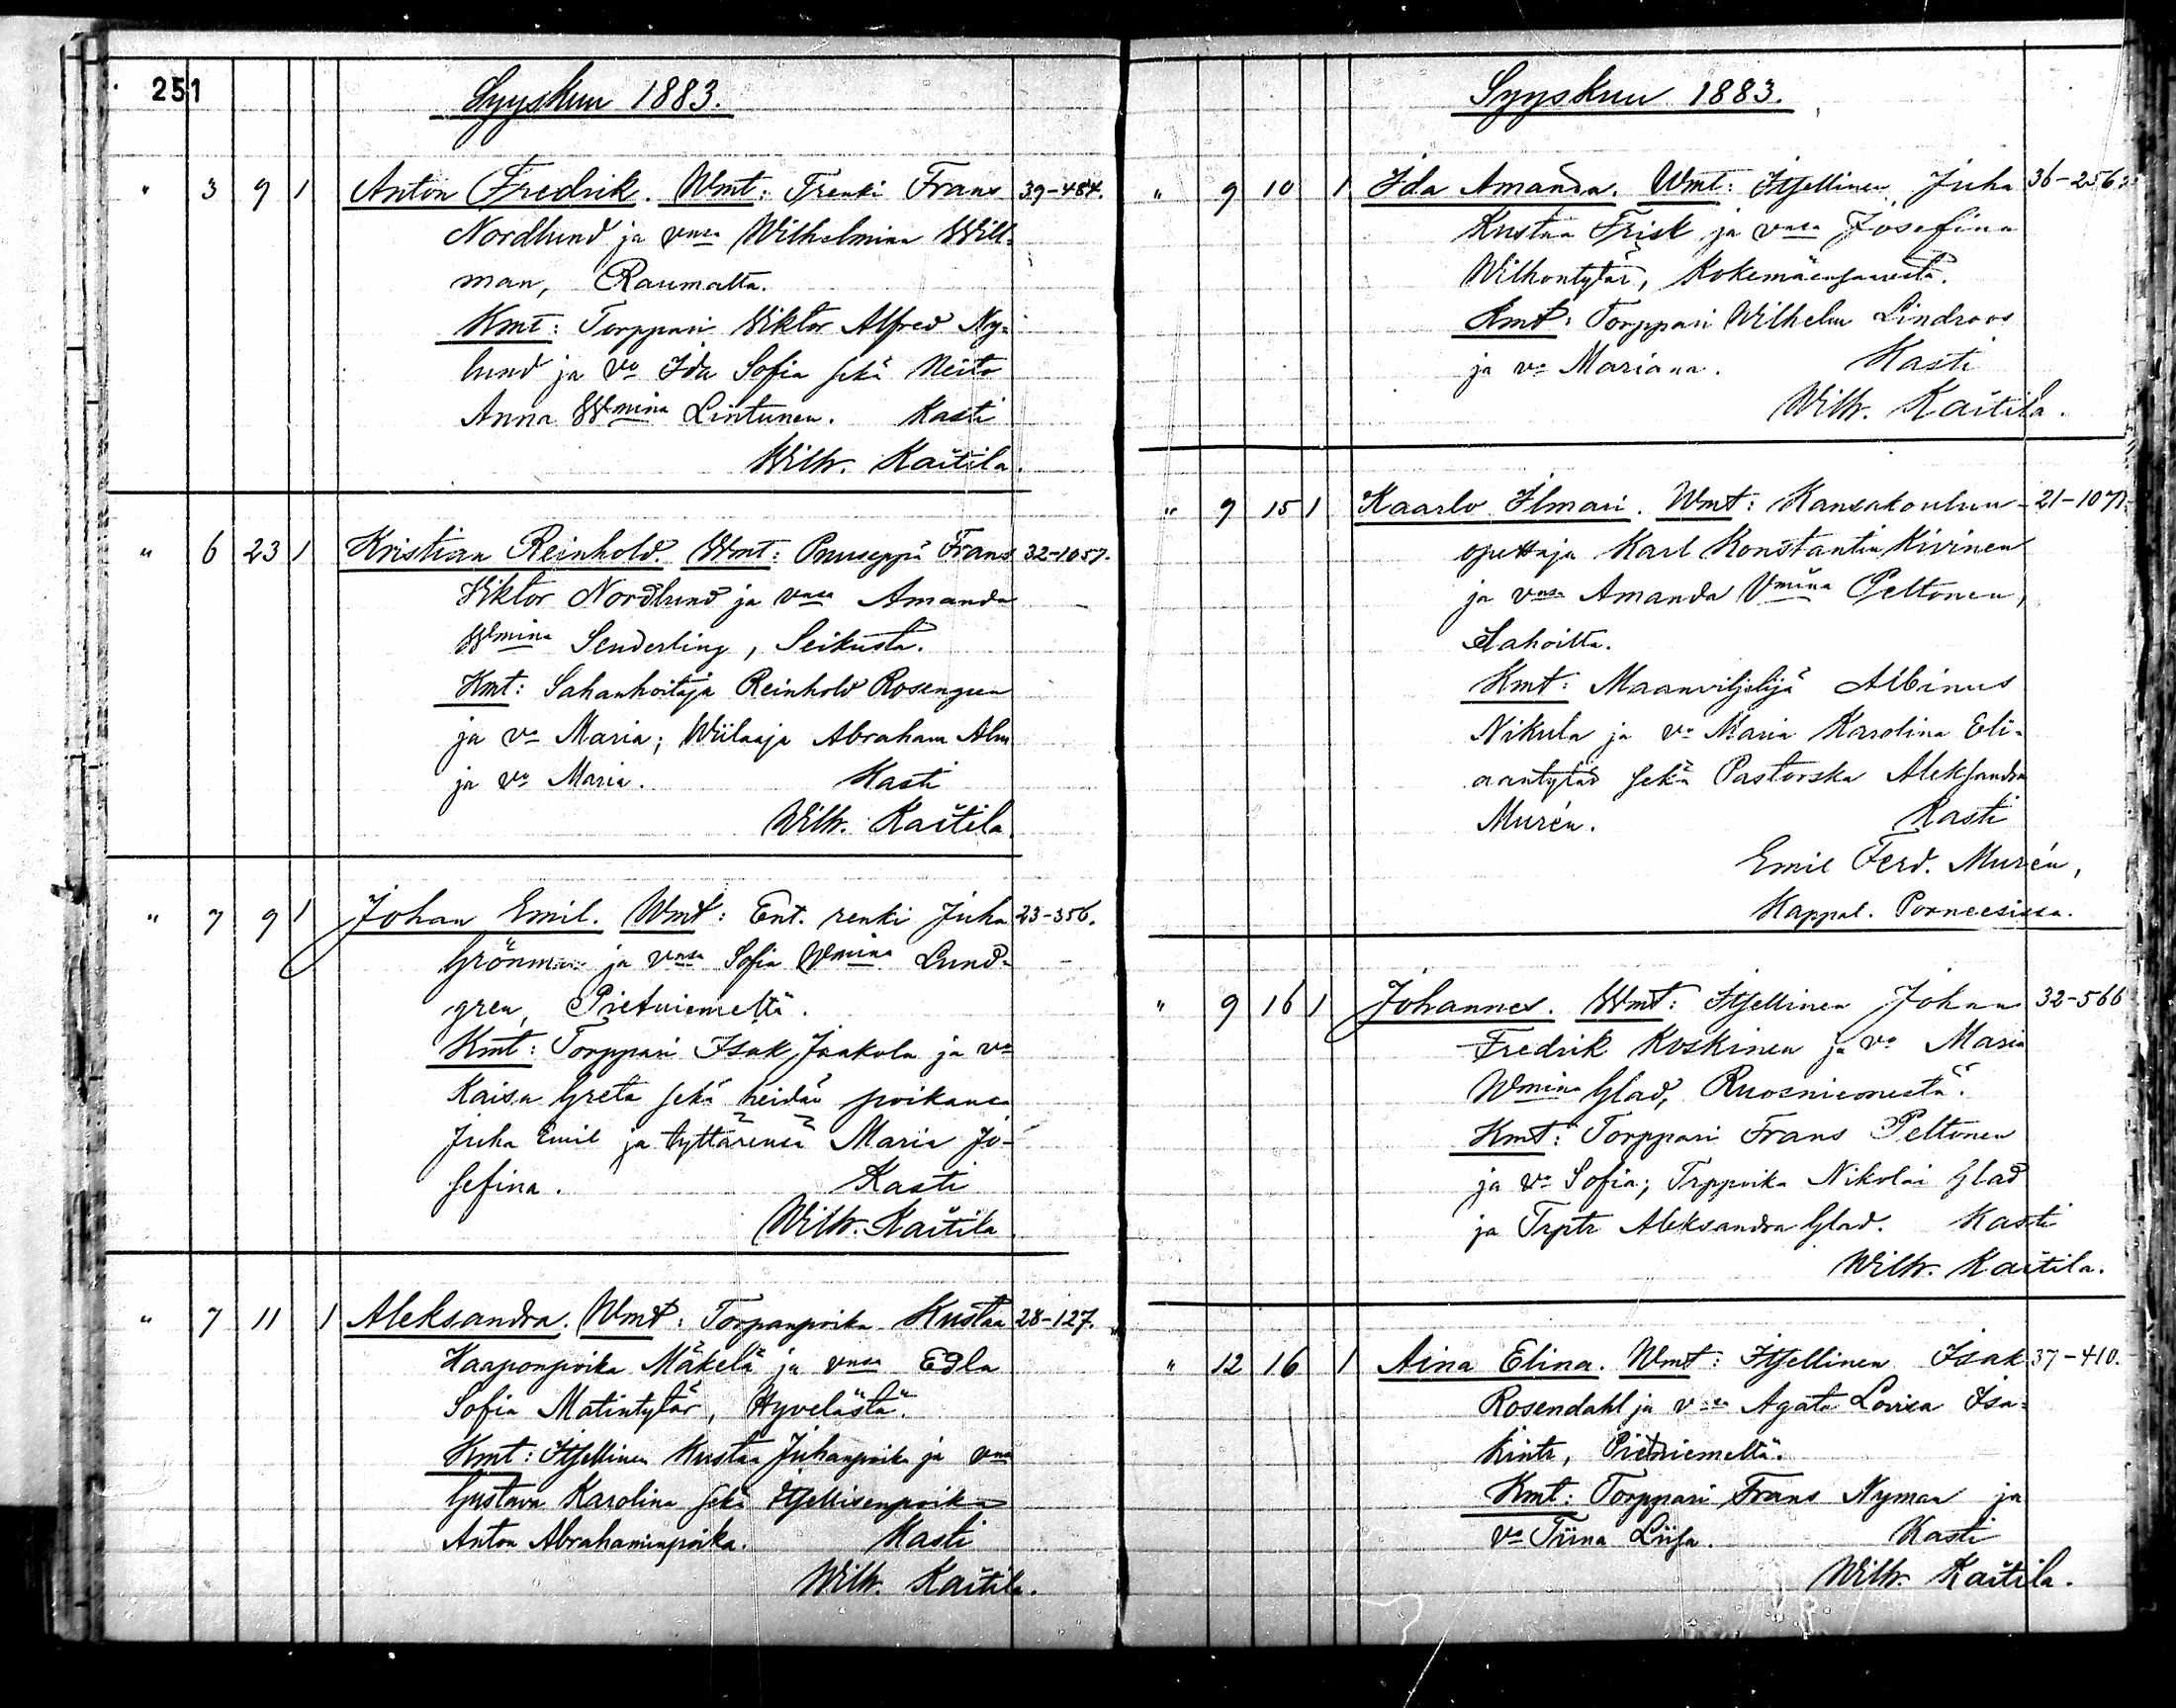 251
Syyskuu 1883.
" 3 9 1 Anton Fredrik. Wmt: Trenki Frans 39-484.
Nordlund ja vnsa Wilhelmina Will-
man, Raumalta.
Kmt: Torppari Viktor Alfred Ny-
lund ja vo Ida Sofia sekä Neito
Anna Wmina Lintunen. Kasti
Wilh. Kaitila.
" 6 23 1 Kristian Reinhold. Wmt: Puuseppä Frans 32-1057.
Viktor Nordlund ja vnsa Amanda
Wmina Senderling, Seikusta.
Kmt: Sahanhoitaja Reinhold Rosengren
ja vo Maria; Wiilaaja Abraham Alm
ja vo Maria. Kasti
Wilh. Kaitila
" 7 9 1 Johan Emil. Wmt: Ent. renki Juha 23-356.
Grönman ja vnsa Sofia Wmina Lund-
gren, Pietniemeltä.
Kmt: Torppari Isak Jaakola ja vo
Kaisa Greta sekä heidän poikansa
Juha Emil ja tyttärensä Maria Jo-
sefina. Kasti
Wilh. Kaitila
" 7 11 1 Aleksandra. Wmt: Torpanpoika Kustaa 28-127.
Haaponpoika Mäkelä ja vnsa Edla
Sofia Matintytär, Hyvelästä.
Kmt: Itsellinen Kustaa Juhanpoika ja vnsa
Gustava Karolina sekä Itsellisenpoika
Anton Abrahaminpoika. Kasti
Wilh. Kaitila.
Syyskuu 1883.
" 9 10 1 Ida Amanda. Wmt: Itsellinen Juha 36-256
Kustaa Frisk ja vnsa Josefina
Wilhontytär, Kokemäensaaresta.
Kmt: Torppari Wilhelm Lindroos
ja vo Mariana. Kasti
Wilh. Kaitila.
" 9 15 1 Kaarlo Ilmari. Wmt: Kansakoulun- 21-1071.
opettaja Karl Konstantin Kivinen
ja vnsa Amanda Vmina Peltonen,
Lahoilta.
Kmt: Maanviljelijä Albinus
Nikula ja vo Maria Karolina Eli-
aantytär sekä Pastorska Aleksandra
Murén. Kasti
Emil Ferd. Murén,
Kappal. Porneesissa.
" 9 16 1 Johannes. Wmt: Itsellinen Johan 32-566
Fredrik Koskinen ja vo Maria
Wmina Glad, Ruosniemestä.
Kmt: Torppari Frans Peltonen
ja vo Sofia; Trppoika Nikolai Glad
ja Trptr Aleksandra Glad. Kasti
Wilh. Kaitila.
" 12 16 1 Aina Elina. Wmt: Itsellinen Isak 37-410.
Rosendahl ja vnsa Agata Lovisa Isa-
kintr, Pietniemeltä.
Kmt: Torppari Frans Nyman ja
vo Tiina Liisa. Kasti
Wilh. Kaitila.